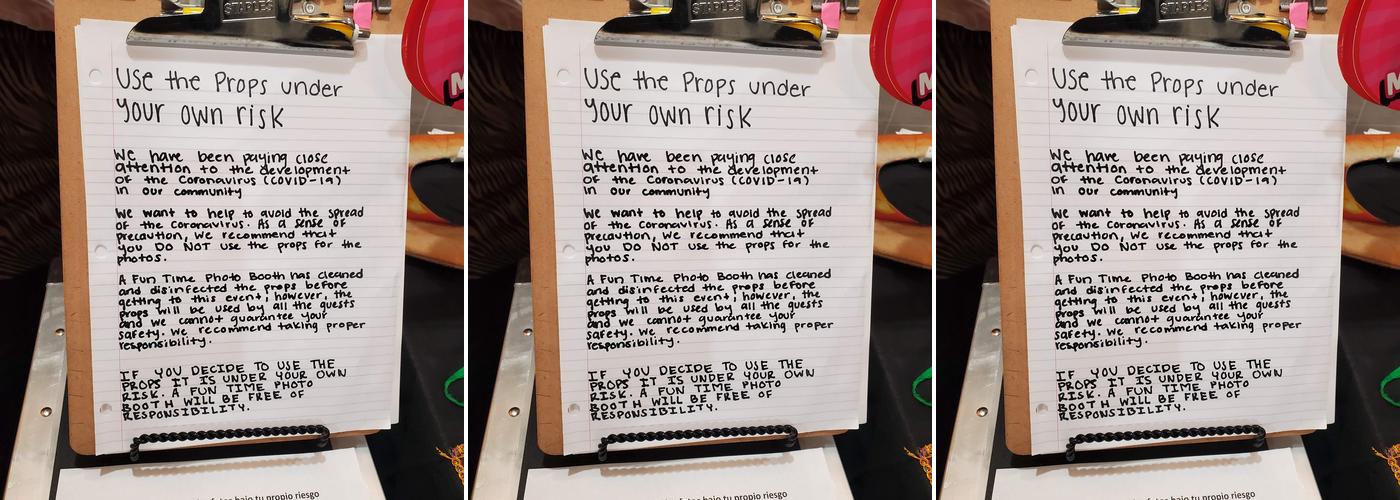 STAPLES
Use the Props under
your own risk
We have been paying close
attention to the development
of the Coronavirus (COVID-19)
in our community
We want to help to avoid the spread
of the Coronavirus. As a sense of
precaution, we recommend that
you DO NOT use the props for the
photos.
A Fun Time Photo Booth has cleaned
and disinfected the props before
getting to this event; however, the
props will be used by all the guests
and we cannot guarantee your
safety. We recommend taking proper
responsibility.
IF YOU DECIDE TO USE THE
PROPS IT IS UNDER YOUR OWN
RISK. A FUN TIME PHOTO
BOOTH WILL BE FREE OF
RESPONSIBILITY.
bajo tu propio riesgo
M
STAPLES
Use the Props under
your own risk
We have been paying close
attention to the development
of the Coronavirus (COVID-19)
in our community
We want to help to avoid the spread
of the Coronavirus. As a sense of
precaution, we recommend that
you DO NOT use the props for the
photos.
A Fun Time Photo Booth has cleaned
and disinfected the props before
getting to this event; however, the
props will be used by all the guests
and we cannot guarantee your
safety. We recommend taking proper
responsibility.
IF YOU DECIDE TO USE THE
PROPS IT IS UNDER YOUR OWN
RISK. A FUN TIME PHOTO
BOOTH WILL BE FREE OF
RESPONSIBILITY.
bajo tu propio riesgo
M
STAPLES
Use the Props under
your own risk
We have been paying close
attention to the development
of the Coronavirus (COVID-19)
in our community
We want to help to avoid the spread
of the Coronavirus. As a sense of
precaution, we recommend that
you DO NOT use the props for the
photos.
A Fun Time Photo Booth has cleaned
and disinfected the props before
getting to this event; however, the
props will be used by all the guests
and we cannot guarantee your
safety. We recommend taking proper
responsibility.
IF YOU DECIDE TO USE THE
PROPS IT IS UNDER YOUR OWN
RISK. A FUN TIME PHOTO
BOOTH WILL BE FREE OF
RESPONSIBILITY.
bajo tu propio riesgo
M